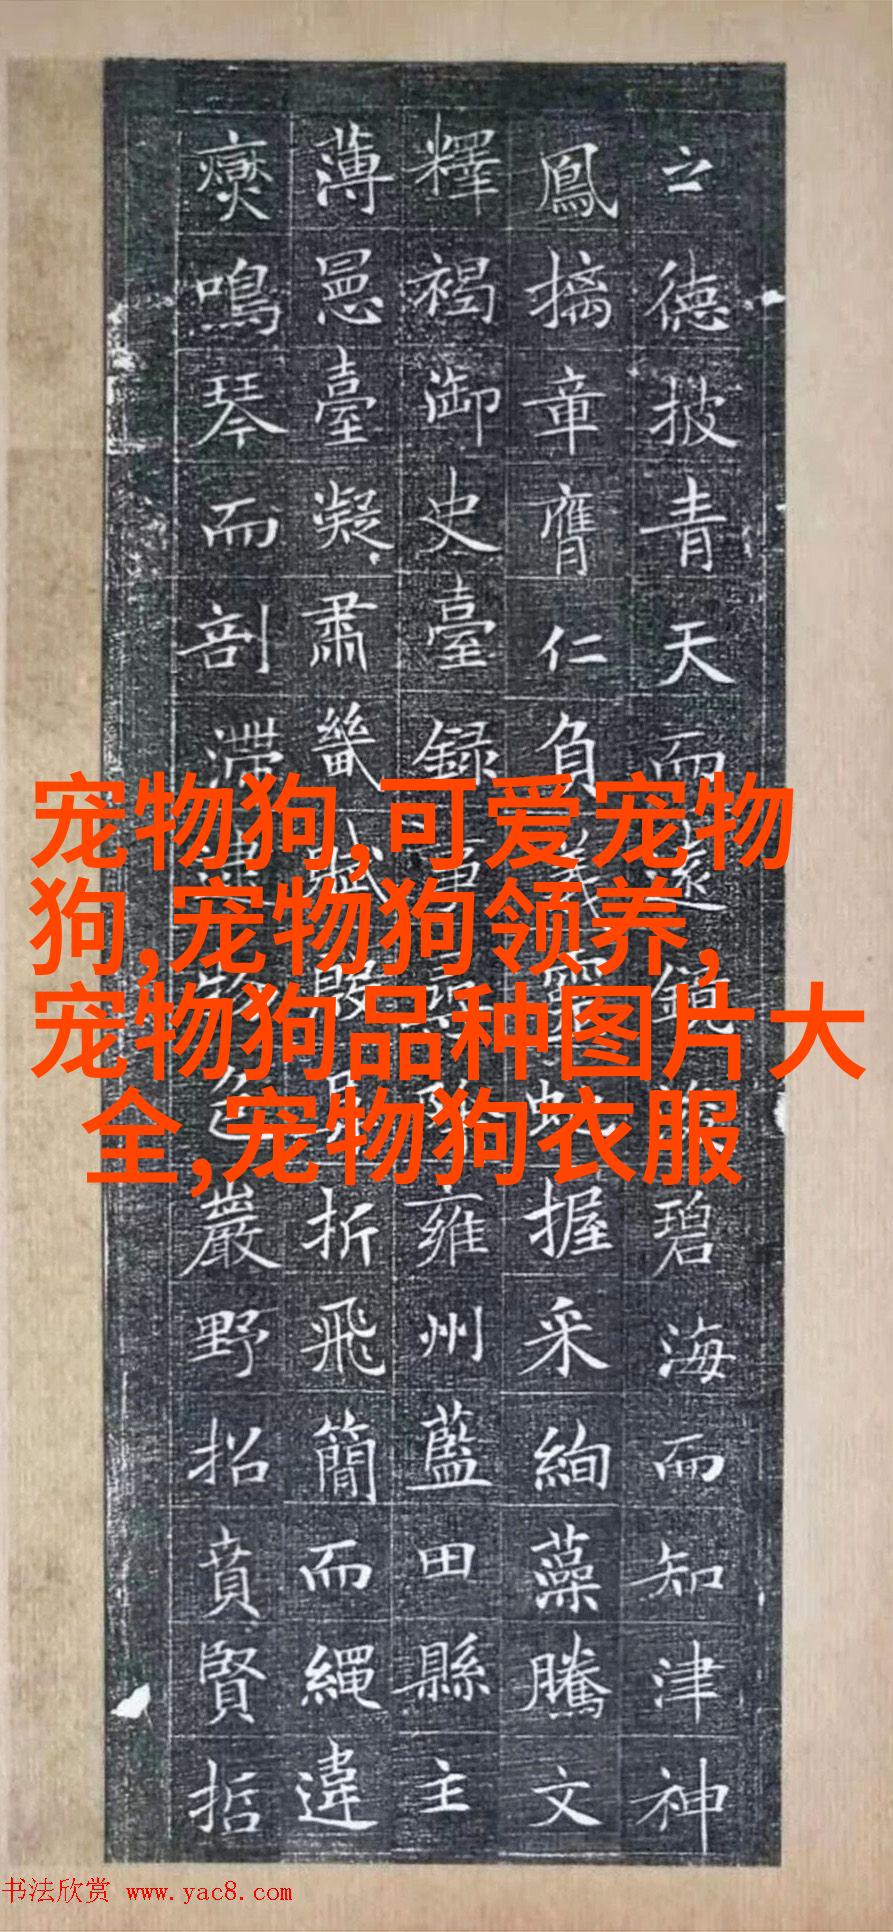 之德披青天而遠鏡碧海而知津神
鳳摛章膺仁負義靈虵握采絢藻騰文
釋褐御史臺録事雍州藍田縣主
薄罳臺凝肅畿折飛簡而繩違
鳴琴而剖滯物色巖野招賁賢哲
宠物狗,可爱宠物
狗,宠物狗领养,
宠物狗品种图片大
全,宠物狗衣服
书法欣赏 www.yac8.com